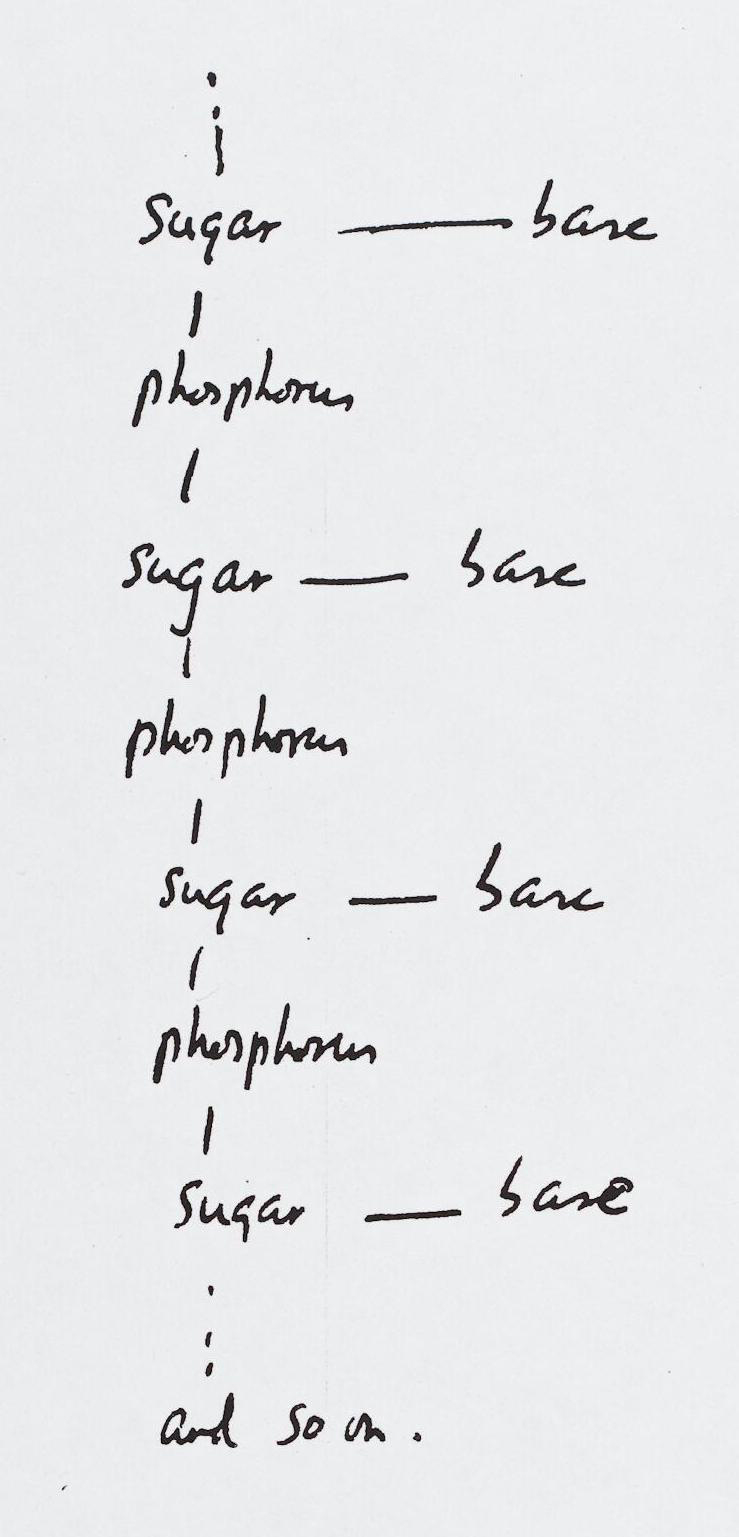 Sugar — base
phosphorus
sugar — base
phosphorus
sugar — base
phosphorus
sugar — base
and so on.